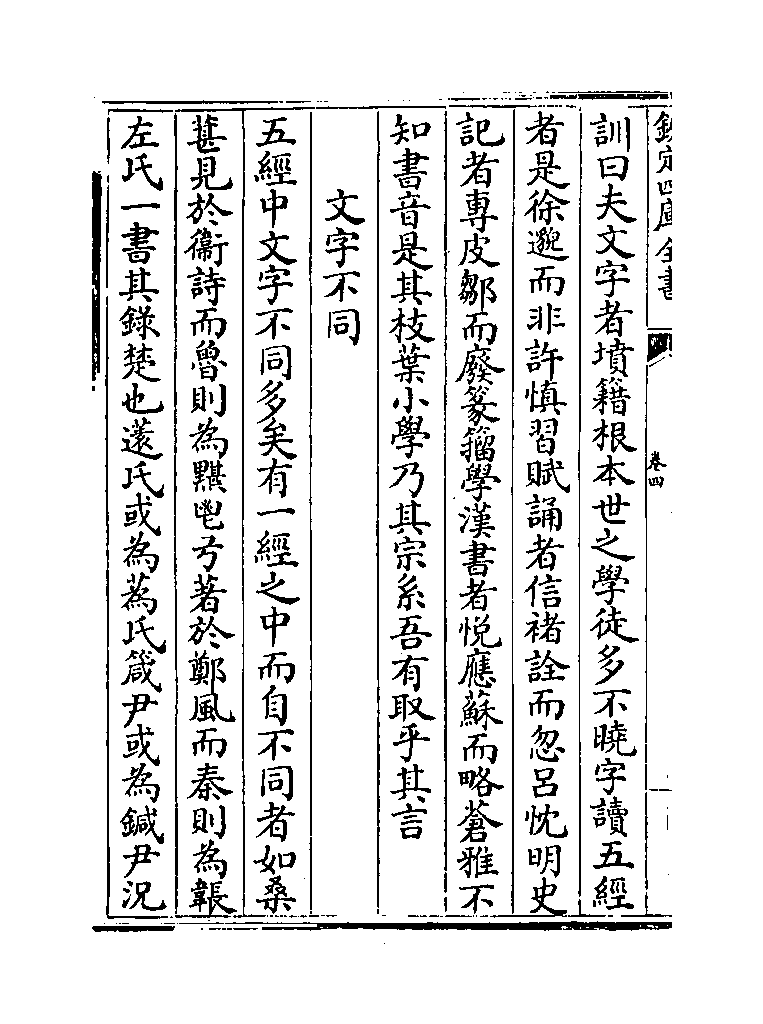 欽定四庫全書
卷四
訓曰夫文字者墳籍根本世之學徒多不曉字讀五經
者是徐邈而非許慎習賦誦者信褚詮而忽呂忱明史
記者專皮鄒而廢篆籀學漢書者悦應蘇而略蒼雅不
知書音是其枝葉小學乃其宗系吾有取乎其言
文字不同
五經中文字不同多矣有一經之中而自不同者如桑
葚見於衞詩而魯則為黮鬯弓著於鄭風而秦則為韔
左氏一書其錄楚也薳氏或為蒍氏箴尹或為鍼尹況